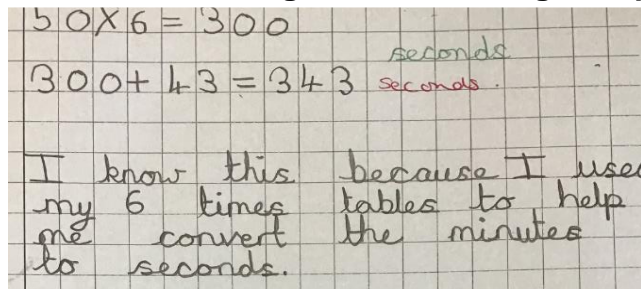 50X6 = 300
seconds
300+ 43 = 343 seconds.
I know this because I used
my 6 times tables to help
me convert the minutes
to seconds.